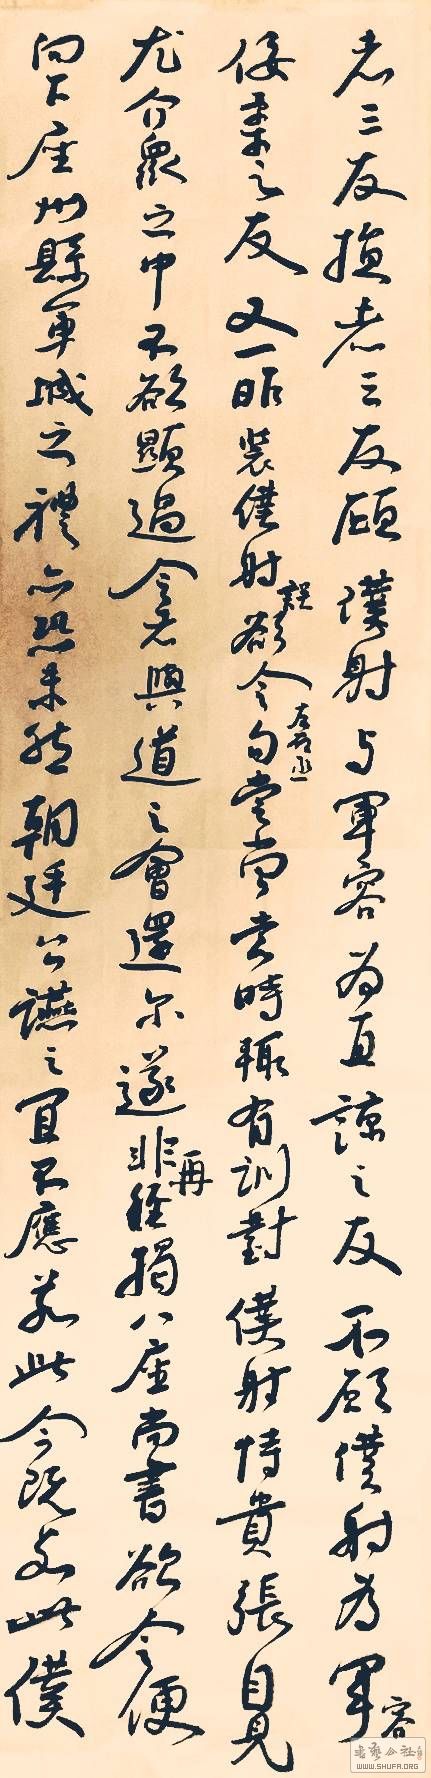 者三友損者三友願僕射与軍容為直諒之友不願僕射為軍容
佞柔之友又一昨裴僕射誤欲令左右丞勾當尚書時輒有詶對僕射恃貴張目見
尤介衆之中不欲顯過今者興道之會還尔遂非再猲八座尚書欲令便
向下座州縣軍城之禮亦恐未然朝廷公讌之宜不應若此今既若此僕
WWW.SHUFA.ORG